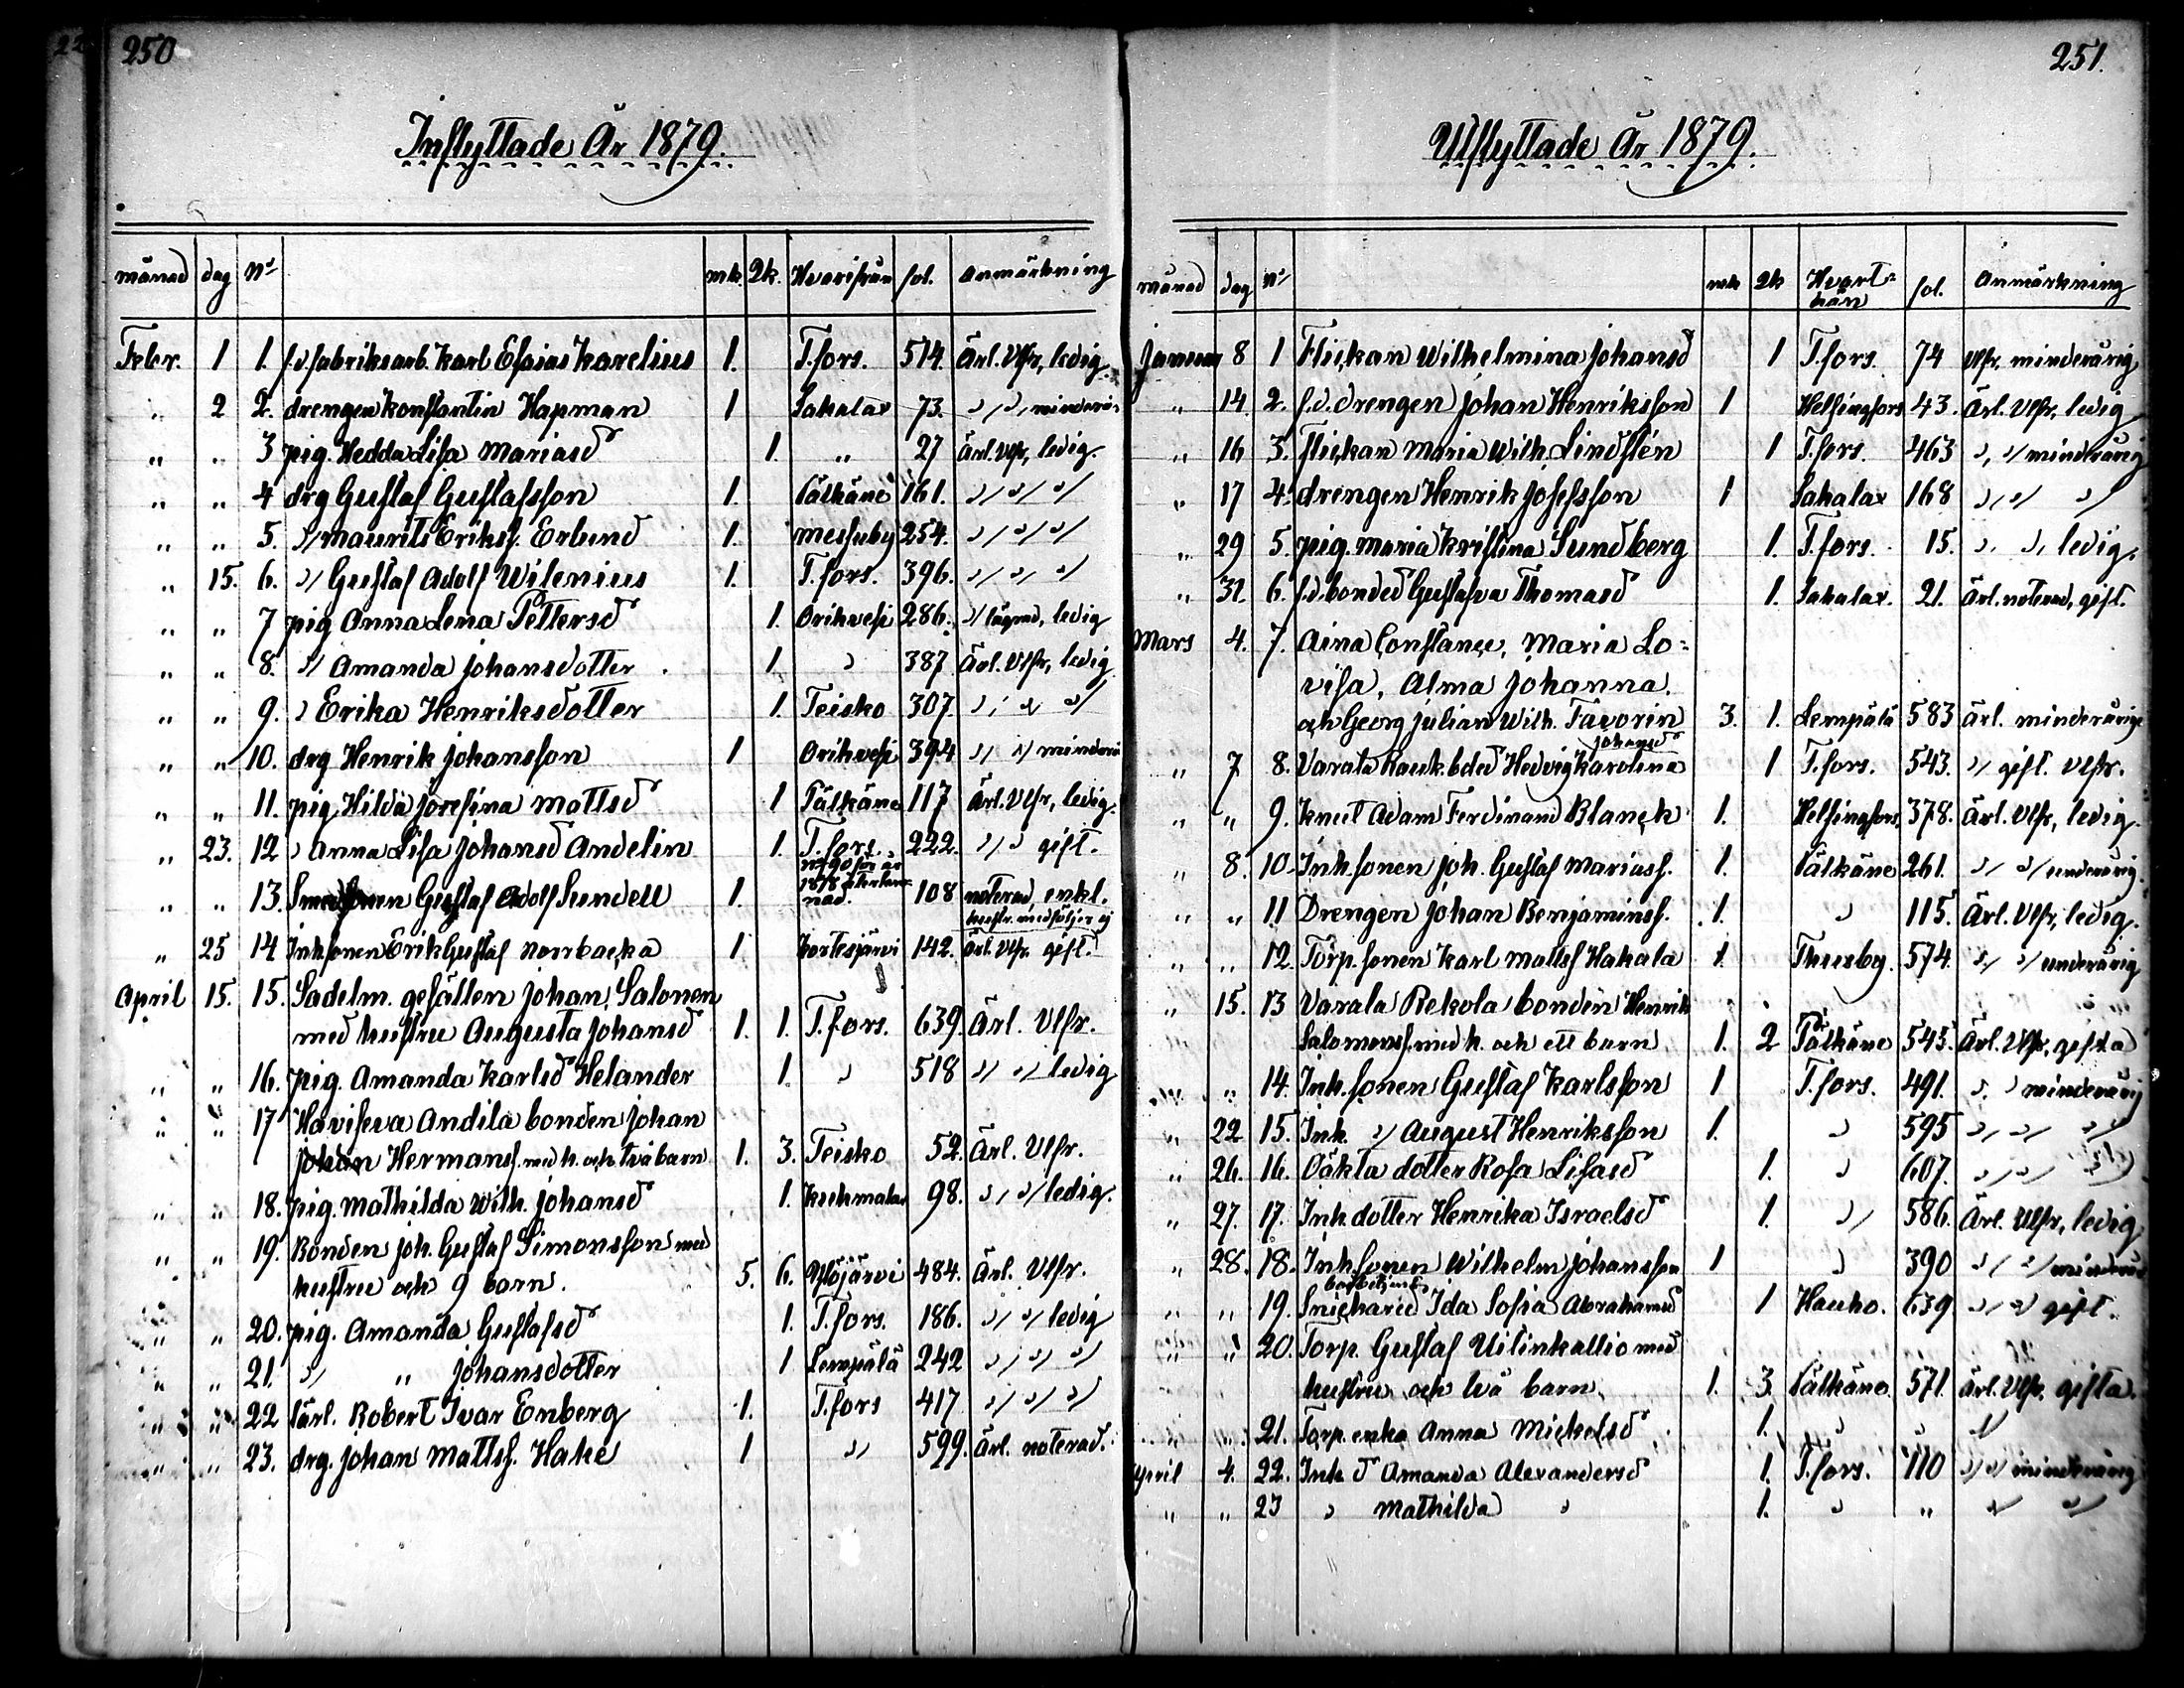 250
Inflyttade År 1879.
månad dag No mk. Qk. Hvarifrån fol. Anmärkning
Febr. 1 1. f.d. fabriksarb. Karl Esaias Karelius 1. T.fors. 514. Ärl. Vfr, ledig.
" 2 2. drengen Konstantin Hapman 1 Sahalax 73. " " minderår
" " 3 pig. Hedda Lisa Mariasd 1. " 27 Ärl. Vfr, ledig.
" " 4 drg Gustaf Gustafsson 1. Pälkäne 161. " " "
" " 5. " Maurits Eriks. Erlund 1. Messuby 254. " " "
" 15. 6. " Gustaf Adolf Wilenius 1. T.fors. 396. " " "
" " 7 pig Anna Lena Pettersd 1. Orihvesi 286. " ledig
" " 8. " Amanda Johansdotter 1. " 387 Ärl. Vfr, ledig
" " 9. " Erika Henriksdotter 1. Teisko 307. " " "
" " 10. drg Henrik Johansson 1 Orihvesi 394 " " minderår
" " 11. pig Hilda Josefina Mattsd 1 Pälkäne 117 Ärl. Vfr, ledig.
" 23. 12 " Anna Lisa Johansd Andelin 1. T.fors. 222. " " gift.
No 90 för år
1878 återlem-
" " 13. Smedsonen Gustaf Adolf Sundell 1. nad. 108 noterad, enkl.
hustr. medföljer ej
" 25 14 Inh sonen Erik Gustaf Norrbacka 1. Kortesjärvi 142. Ärl. Vfr. gift.
April 15. 15. Sadelm. gesällen Johan Salonen
med hustru Augusta Johansd 1. 1. T.fors. 639. Ärl. Vfr.
" " 16. pig. Amanda Karlsd Helander 1. " 518 " " ledig
" " 17 Havisevä Andila bonden Johan
Johan Hermans. med h. och två barn 1. 3. Teisko 52. Ärl. Vfr.
" " 18. pig. Mathilda Wilh. Johansd 1. Kuhmalax 98. " " ledig.
" " 19. Bonden Joh. Gustaf Simonsson med
hustru och 9 barn. 5. 6. Ylöjärvi 484. Ärl. Vfr.
" " 20. pig. Amanda Gustafsd 1. T.fors. 186. " " ledig
" " 21. " " Johansdotter 1 Lempälä 242 " " "
" " 22 Lärl. Robert Ivar Enberg 1. T.fors 417 " " "
" " 23. drg. Johan Matts. Hake 1 " 599. Ärl. noterad.
251.
Utflyttade År 1879.
månad dag No mk Qk Hvart-
hän fol. Anmärkning
Januari 8 1 Flickan Wilhelmina Johansd 1 T.fors. 74 Vfr, minderårig
" 14 2. f.d. drengen Johan Henriksson 1 Helsingfors 43. Ärl. Vfr, ledig
" 16 3. Flickan Maria Wilh. Lindstén 1 T.fors. 463 " " minderårig
" 17 4. drengen Henrik Josefsson 1 Sahalax 168 " " "
" 29 5. pig. Maria Kristina Sundberg 1. T.fors. 15. " " ledig.
" 31. 6. f.d. bonded Gustafva Thomasd 1. Sahalax. 21. Ärl. noterad, gift.
Mars 4. 7. Aina Constance, Maria Lo-
visa, Alma Johanna,
och Georg Julian Wilh. Favorin 3. 1. Lempälä 583 Ärl. minderårige
Johansd
" 7 8. Varala Rauk. bded Hedvig Karolina 1 T.fors. 543. " gift. Vfr.
" " 9. Knut Adam Ferdinand Blanck 1. Helsingfors. 378. Ärl. Vfr, ledig.
" 8. 10. Inh. sonen Joh. Gustaf Mariass. 1. Pälkäne 261. " " underårig.
" " 11 Drengen Johan Benjamins. 1. " 115. Ärl. Vfr, ledig.
" " 12. Torp. sonen Karl Mattss Hakala 1. Thusby. 574. " " underårig
" 15. 13 Varala Rekola bonden Henrik
Salomons. med h. och ett barn 1. 2 Pälkäne 545. Ärl. Vfr, gifta
" " 14. Inh. sonen Gustaf Karlsson 1 T.fors. 491. " " minderårig
" 22 15. Inh. " August Henriksson 1. " 595 " " "
" 26. 16. Oäkta dotter Rosa Lisasd 1. " 607. " "
" 27. 17. Inh dotter Henrika Israelsd 1. " 586. Ärl. Vfr, ledig
" 28. 18. Inh. sonen Wilhelm Johansson 1 " 390 " " minderår
" " 19. Snickared Ida Sofia Abrahamsd 1 Hauho. 639 " " gift.
" " 20. Torp. Gustaf Uilinkallio med
hustru och två barn 1. 3. Pälkäne. 571. Ärl. Vfr, gifta.
" " 21. Torp. enka Anna Mickelsd 1. " " "
April 4. 22. Inh d Amanda Alexandersd 1. T.fors. 110 " " minderårig
" " 23 " Mathilda " 1. " " " "